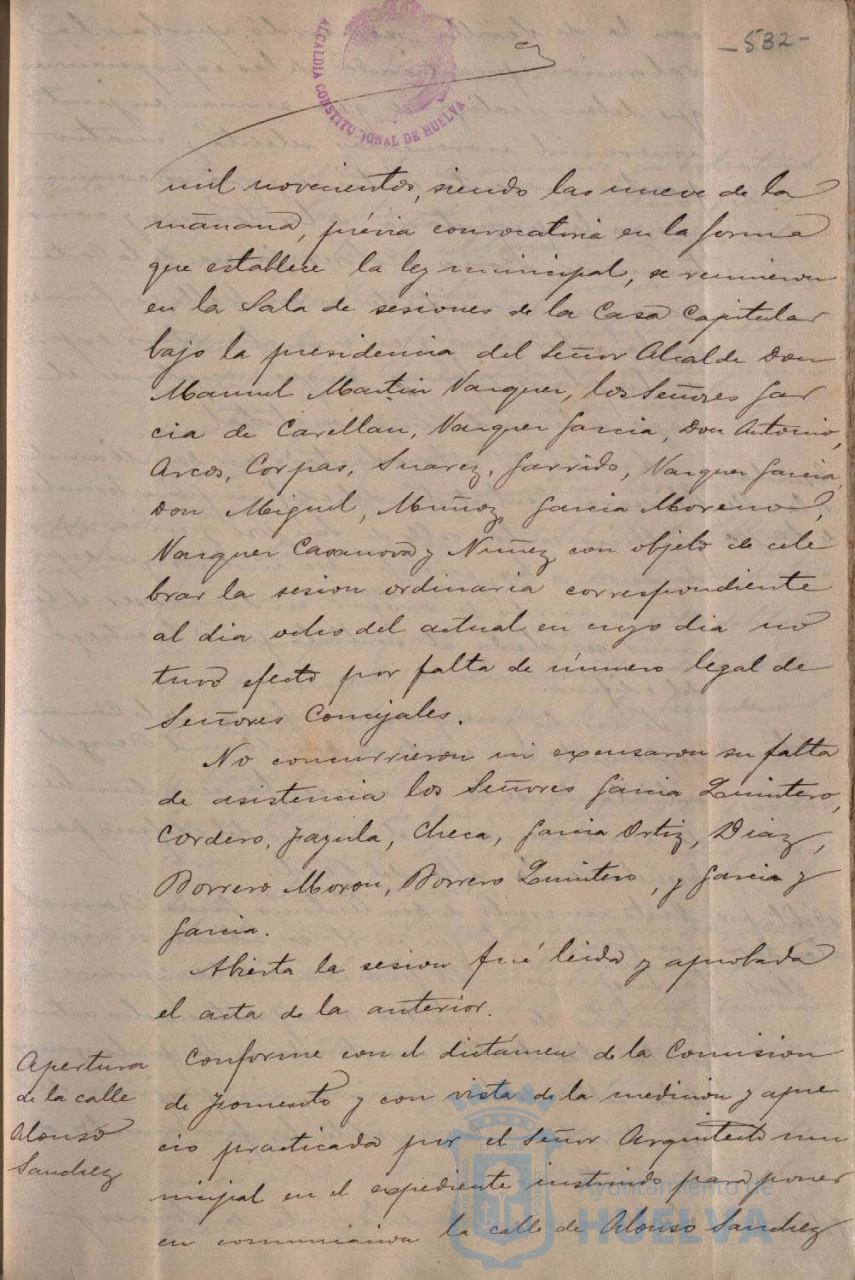 - 532 -
ALCALDIA CONSTITUCIONAL DE HUELVA
mil novecientos, siendo las nueve de la
mañana, prévia convocatoria en la forma
que establece la ley municipal, se reunieron
en la Sala de sesiones de la Casa Capitular
bajo la presidencia del Señor Alcalde Don
Manuel Martin Vazquez, los Señores Gar
cia de Carellan, Vazquez Garcia, Don Antonio,
Arcos, Corpas, Suarez, Garrido, Vazquez Garcia,
Don Miguel, Muñoz, Garcia Moreno,
Vazquez Casanova y Nuñez con objeto de cele
brar la sesion ordinaria correspondiente
al dia ocho del actual en cuyo dia no
tuvo efecto por falta de número legal de
Señores Concejales.
No concurrieron ni excusaron su falta
de asistencia los Señores Garcia Quintero,
Cordero, Jazula, Checa, Garcia Ortiz, Diaz,
Borrero Moron, Borrero Quintero, y Garcia y
Garcia.
Abierta la sesion fué leida y aprobada
el acta de la anterior.
Apertura
de la calle
Alonso
Sanchez
Conforme con el dictámen de la Comision
de Fomento y con vista de la medicion y apre
cio practicada por el Señor Arquitecto mu
nicipal en el expediente instruido para poner
en comunicacion la calle de Alonso Sanchez
Ayuntamiento de
HUELVA